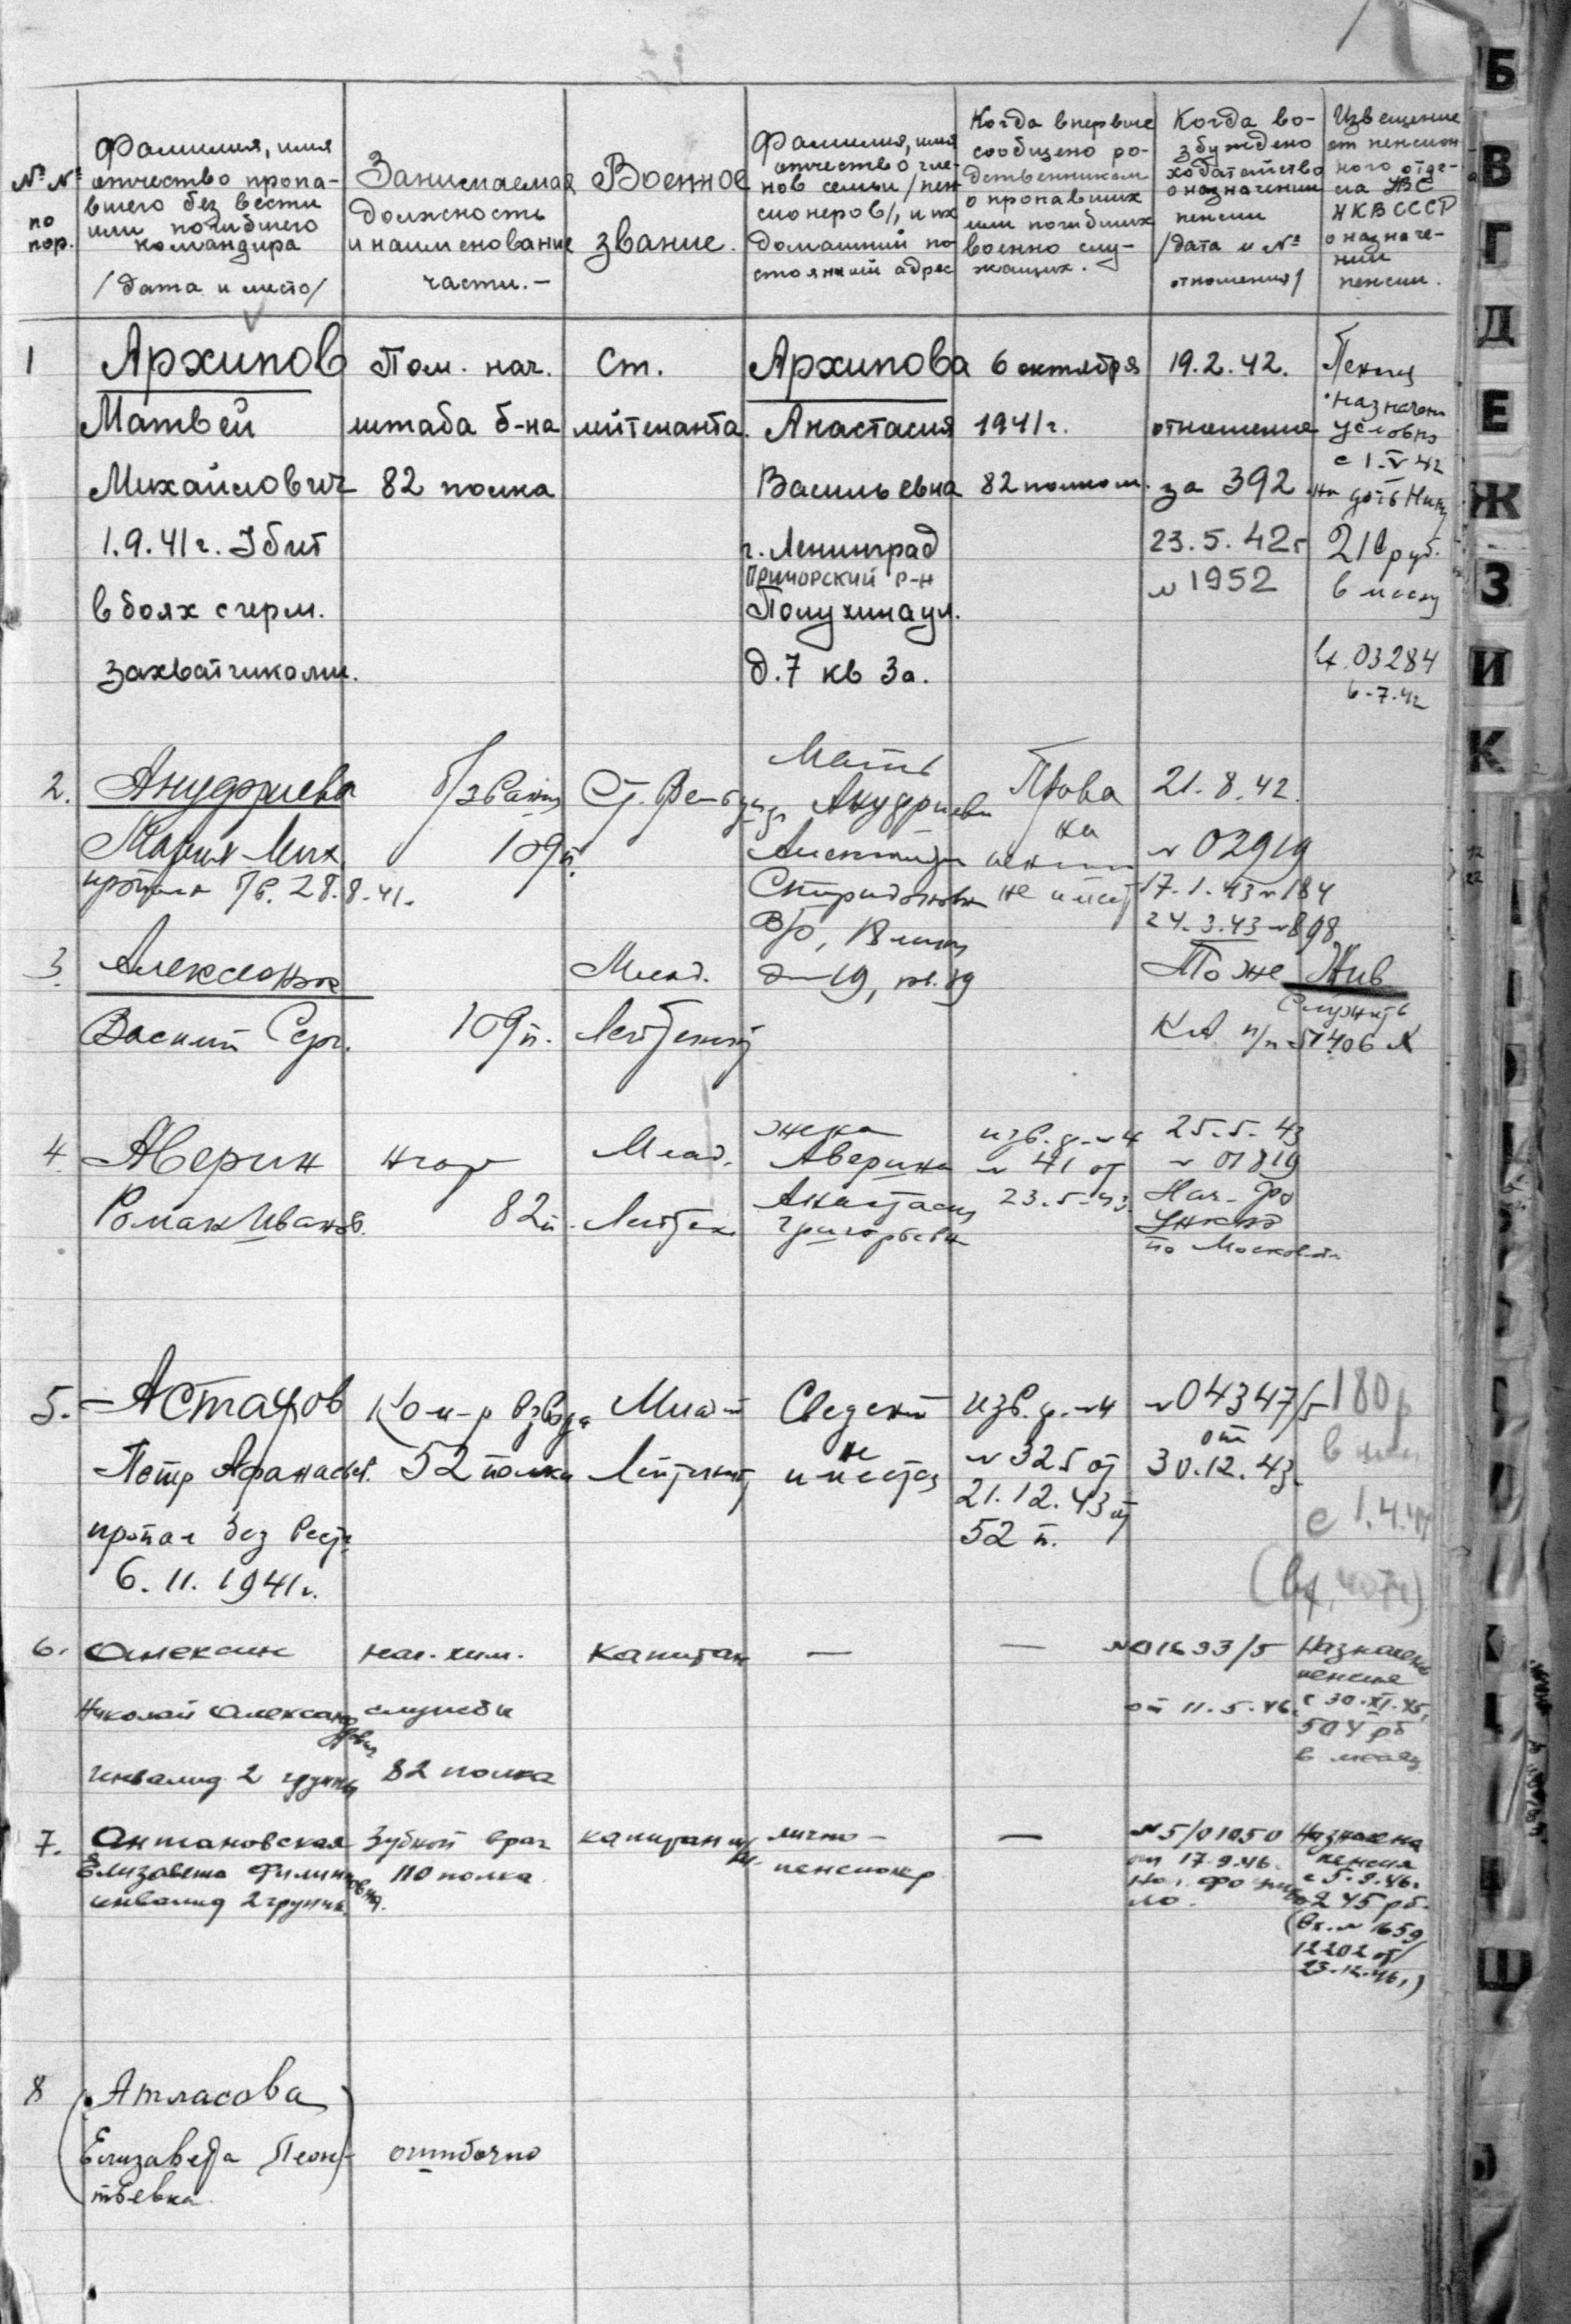 №№ по пор.
Фамилия, имя
отчество пропа-
вшего без вести
или погибшего
командира
/дата и место/
Занимаемая
должность
и наименование
части.-
Военное
звание.
Фамилия, имя
отчество чле-
нов семьи /пен
сионеров/, и их
домашний по-
стоянный адрес
Когда впервые
сообщено ро-
дственникам
о пропавших
или погибших
военно слу-
жащих.
Когда во-
збуждено
ходатайство
о назначении
пенсии
/дата и №
отношения/
Извещение
от пенсион
ного отде-
ла
НКВ СССР
о назначе-
нии
пенсии.
1
Архипов
Матвей
Михайлович
1.9.41г. Убит
в боях с герм.
захватчиками.
Пом. нач.
штаба б-на
82 полка
Ст.
лейтенанта.
Архипова
Анастасия
Васильевна
г. Ленинград
Приморский р-н
Полухина ул.
д.7 кв 3а.
6 октября
1941г.
82 полком.
19.2.42.
отношение
за 392
23.5.42г
№ 1952
Пенсия
назначен
условно
с 1.V 42
на дочь Нину
210 руб.
в месяц
вх. 03284
6-7-42
2.
Ануфриева
Мария Мих.
пропала б/в. 28.8.41.
б/звания
109 п.
Ст. Фельдшер
Мать
Ануфриева
Александра
Спиридоновна
В/О, 18 линия
д-19, кв. 19
Права
на
пенсии
не имеет
21.8.42.
№ 02919
17.1.43 № 184
24.3.43 № 898
3
Василий Серг.
109 п.
Млад.
Лейтенант
То же
Жив
Служит в
КА п/п 57406 Х
4.
Аверин
Роман Иванов.
82 п.
Млад.
Лейтен.
жена
Аверина
Анастасия
Григорьевна
изв. ф. №4
№ 41 от
23.5-43.
25.5.43
№ 01819
Нач. ФО
УНКВД
по Московск.
5.
Астахов
Петр Афанасьев.
пропал без вести
6.11.1941г.
Ком-р взвода
52 полка
Млад-й
Лейтенант
Сведений
не
имеется
изв. ф. №4
№ 325 от
21.12.43 от
52 п.
№ 04347/5
от
30.12.43.
180 р
в мес
с 1.4.44
6.
Алексин
Николай Александрович
инвалид 2 группы
нач. хим.
службы
82 полка
капитан
—
—
№ 01693/5
от 11.5.46.
Назначена
пенсия
с 30.XI.45,
504 рб
в месяц
7.
Антановская
Елизавета Филипповна.
инвалид 2 группы.
Зубной врач
110 полка
капитан м/с
лично-
пенсионер.
—
№ 5/01050
от 17.9.46.
ЛО.
Назначена
пенсия
с 5.9.46.
245 рб.
(вх. № 1659
12202 от
23.12.46.)
8
(Атласова
Елизавета Леон-
тьевна)
ошибочно
Б
В
Г
Д
Е
Ж
З
И
К
Ш